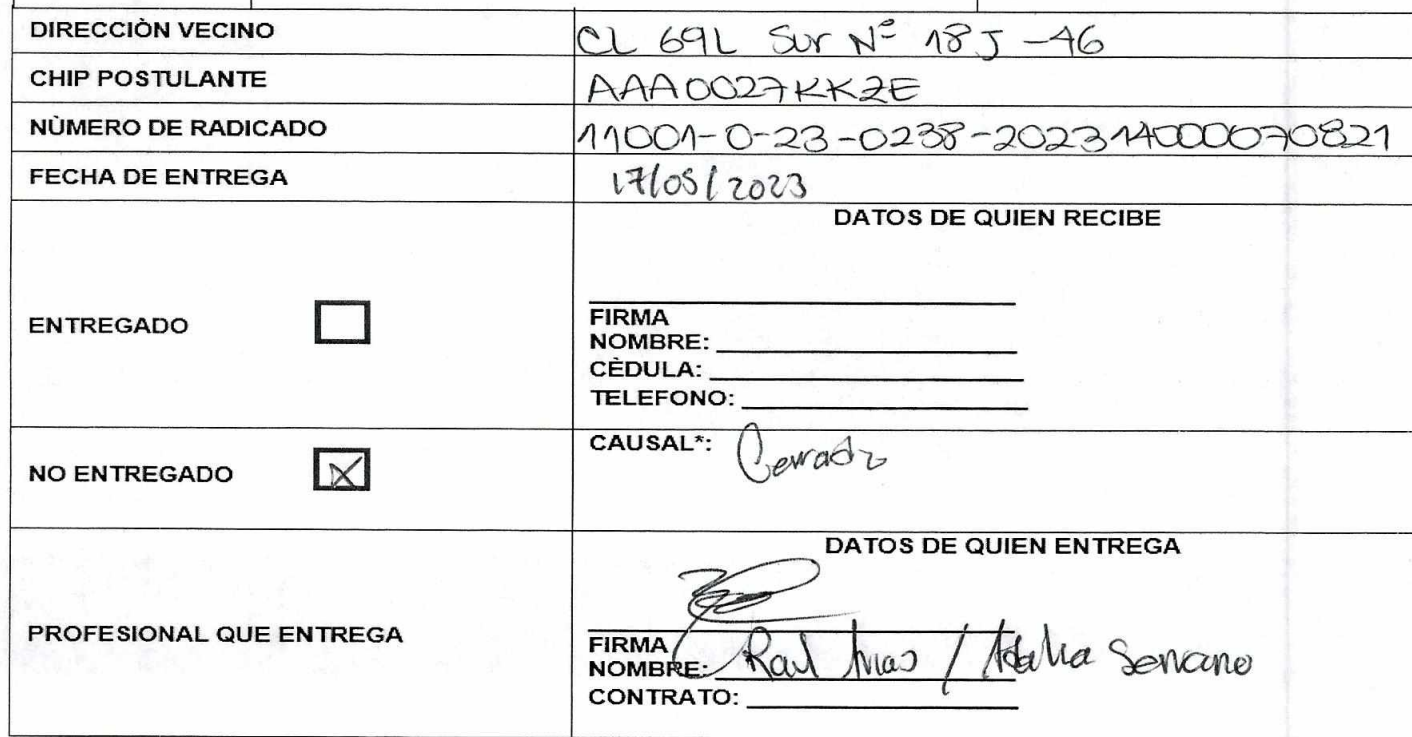 DIRECCIÒN VECINO CL 69L Sur Nº 18J -46
CHIP POSTULANTE AAA0027KKZE
NÙMERO DE RADICADO 11001-0-23-0238-20231400070821
FECHA DE ENTREGA 17/05/2023
DATOS DE QUIEN RECIBE
ENTREGADO
FIRMA
NOMBRE:
CÈDULA:
TELEFONO:
NO ENTREGADO
CAUSAL*: Cerrado
DATOS DE QUIEN ENTREGA
PROFESIONAL QUE ENTREGA
FIRMA
NOMBRE: Raul Arias / Serrano
CONTRATO: